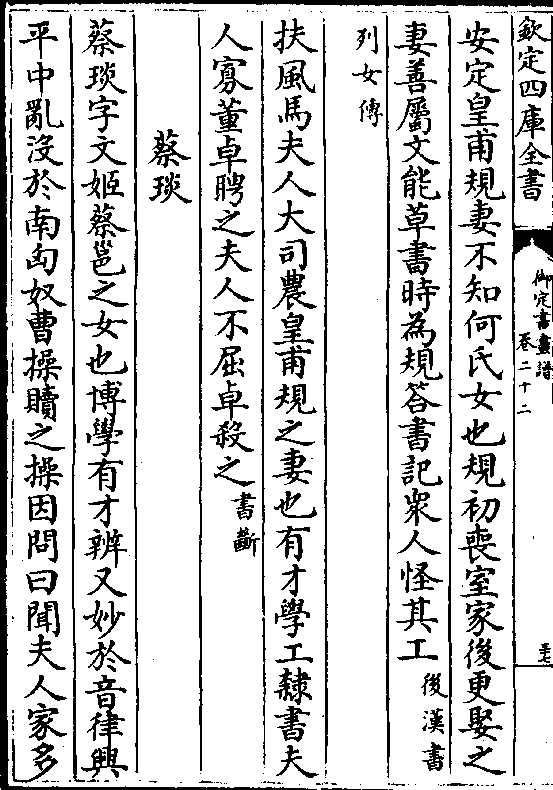 欽定四庫全書
御定書畫譜
卷二十二
安定皇甫規妻不知何氏女也規初喪室家後更娶之
妻善屬文能草書時為規答書記衆人怪其工後漢書
列女傳
扶風馬夫人大司農皇甫規之妻也有才學工隸書夫
人寡董卓聘之夫人不屈卓殺之書斷
蔡琰
蔡琰字文姬蔡邕之女也博學有才辨又妙於音律興
平中亂没於南匈奴曹操贖之操因問曰聞夫人家多